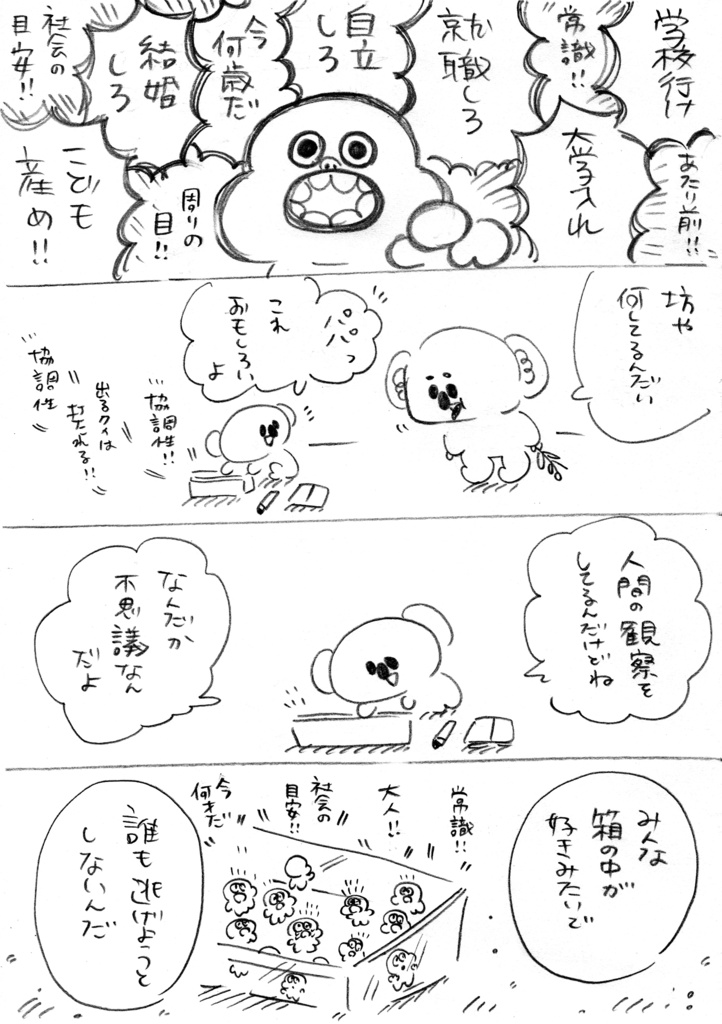 学校行け
常識!!
あたり前!!
大学入れ
就職しろ
自立
しろ
今
何歳だ
周りの
目!!
結婚
しろ
社会の
目安!!
こども
産め!!
坊や
何してるんだい
パパっ
これ
おもしろい
よ
協調性!!
出るクイは
打たれる!!
協調性
人間の観察を
してるんだけどね
なんだか
不思議なん
だよ
みんな
箱の中が
好きみたいで
常識!!
大人!!
社会の
目安!!
今
何才だ
誰も逃げようと
しないんだ